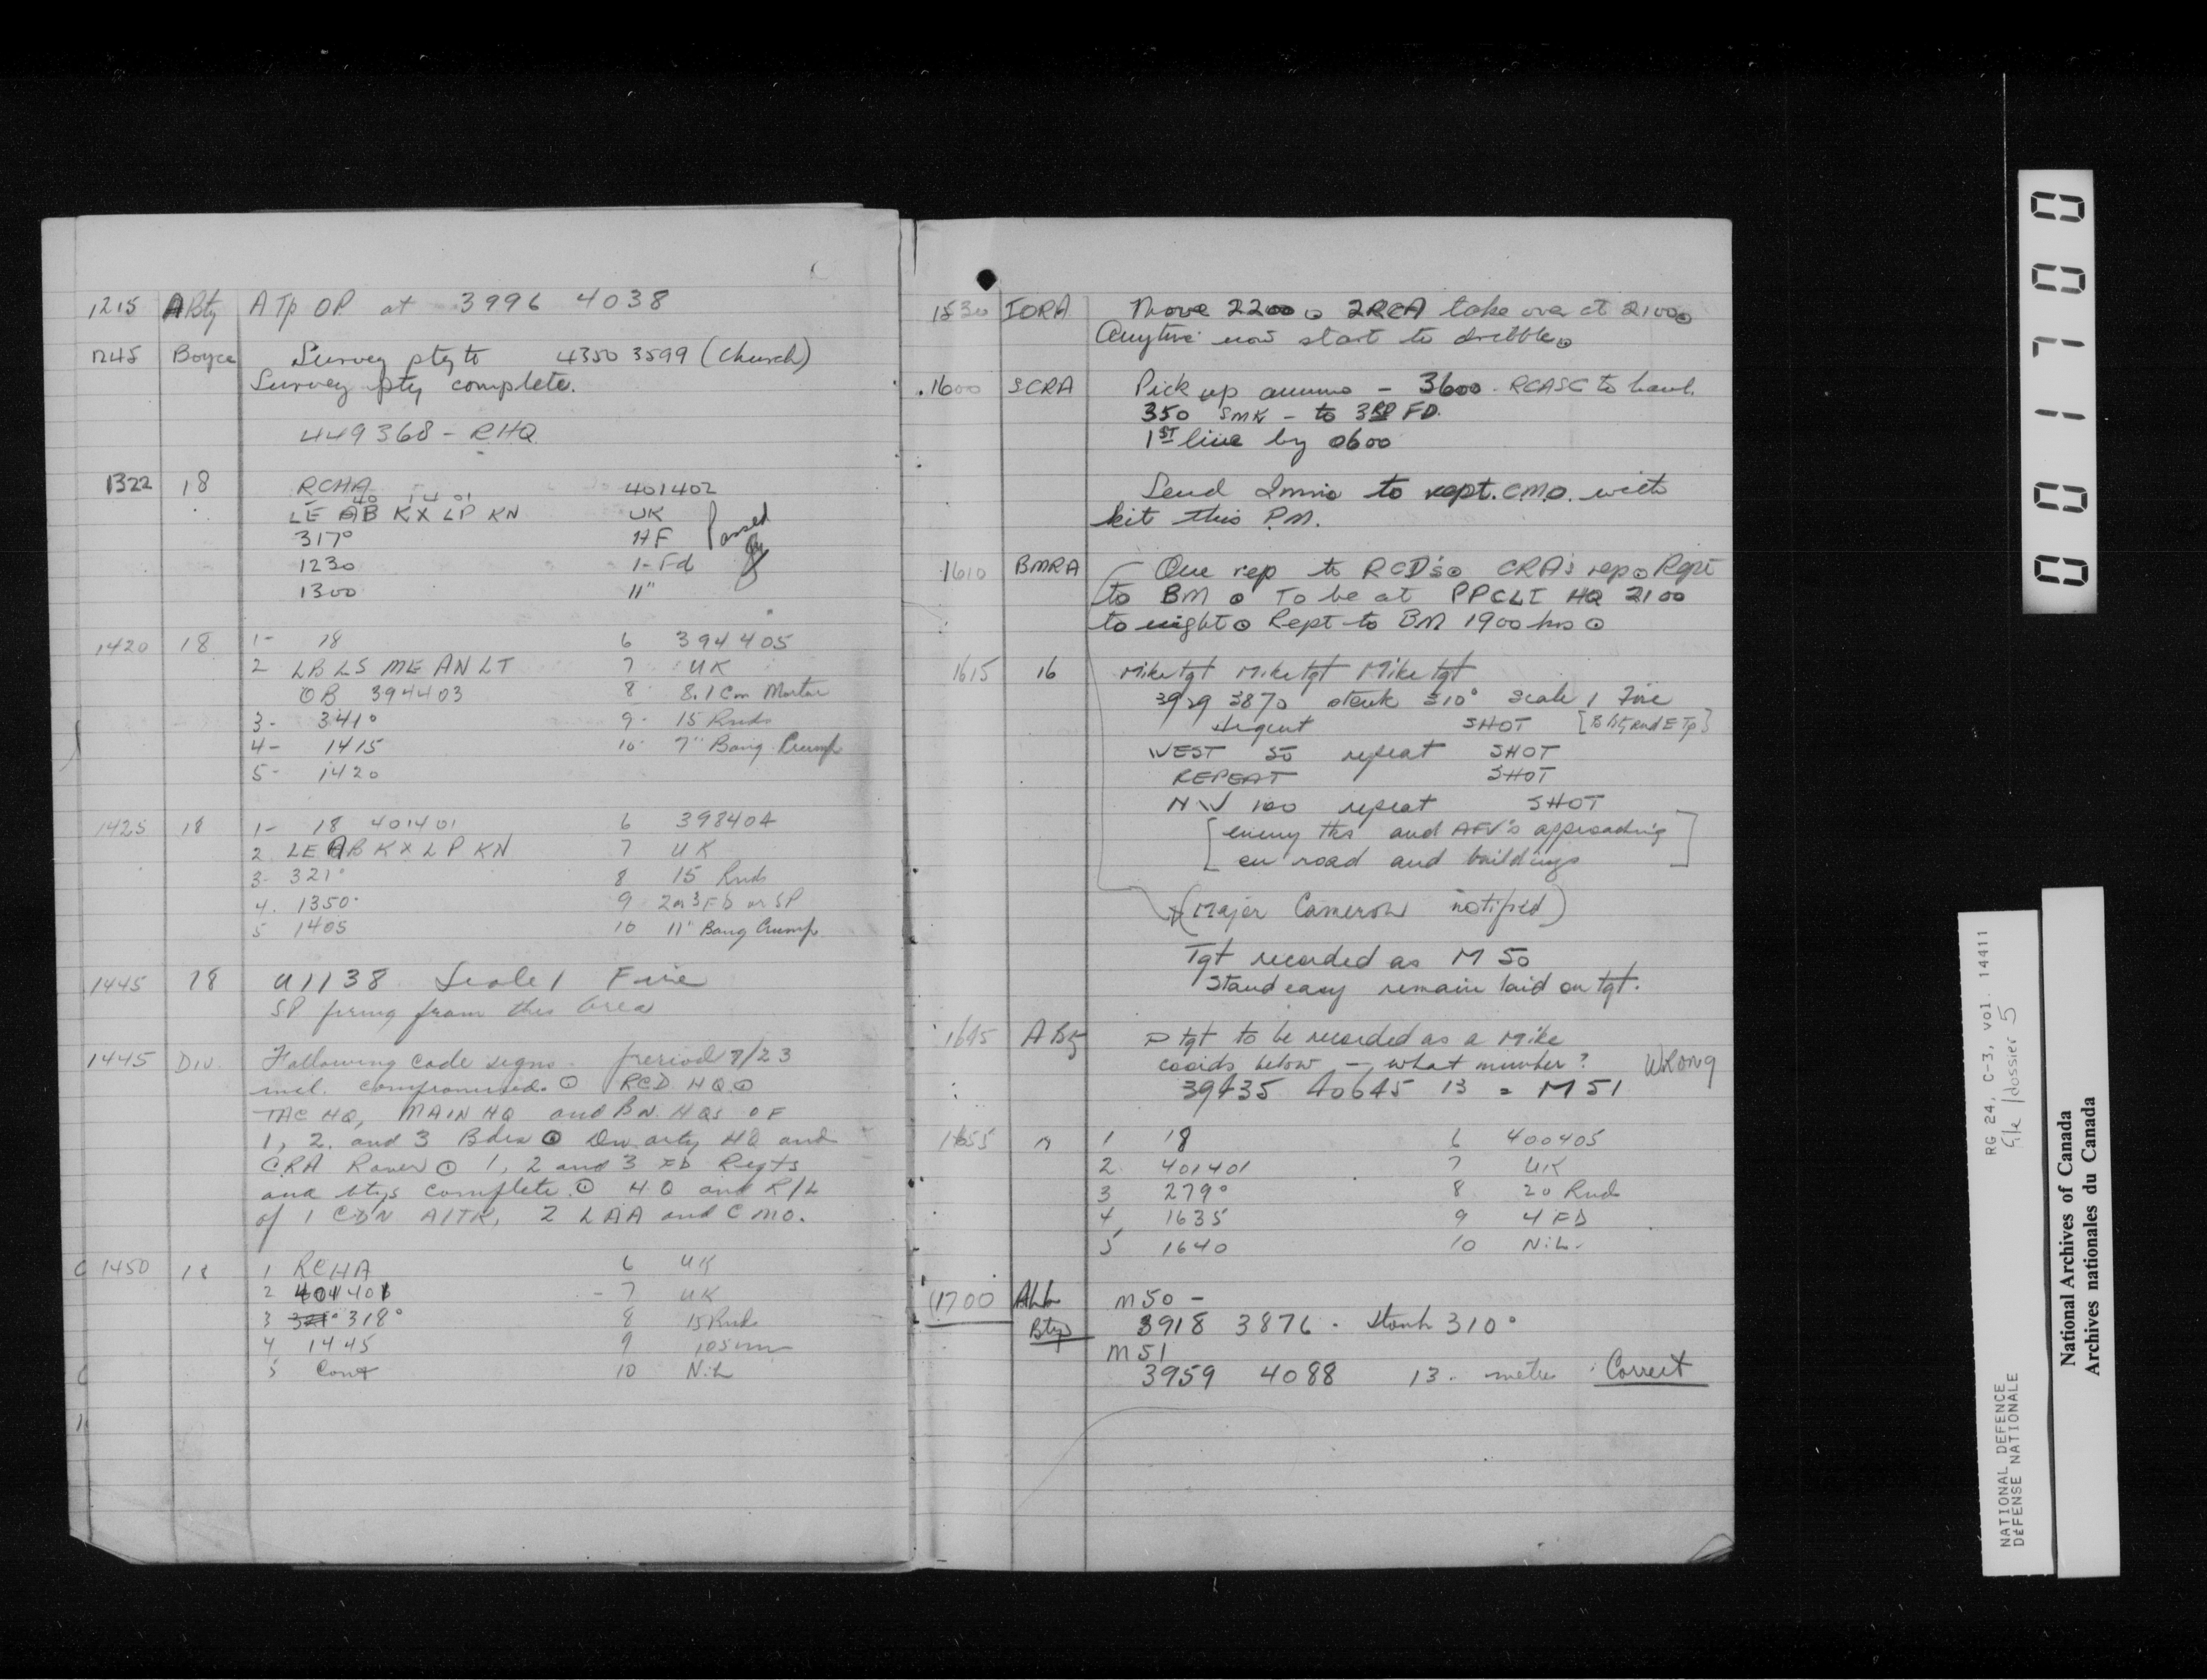 1215 A Bty A Tp OP at 3996 4038
1245 Boyce Survey pty to 4350 3599 (Church)
Survey pty complete.
449368 - RHQ
1322 18 RCHA 401402
40 14 01
LE AB KX LP KN UK
317° HF Passed
1230 1-Fd
1300 11"
1420 18 1- 18 6 394405
2 LB LS ME AN LT 7 UK
OB 394403 8 8.1 Cm Mortar
3- 341° 9- 15 Rnds
4- 1415 10 7" Bang Crump
5- 1420
1425 18 1- 18 401401 6 398404
2 LE AB KX LP KN 7 UK
3- 321° 8 15 Rnds
4. 1350 9 2 or 3 FD or SP
5 1405 10 11" Bang Crump
1445 18 U1138 Scale 1 Fire
SP firing from this area
1445 Div. Following code signs - period 7/23
incl. compromised. ⊙ RCD HQ ⊙
TAC HQ, MAIN HQ and BN. HQs OF
1, 2 and 3 Bdes ⊙ Div arty HQ and
CRA Rover ⊙ 1, 2 and 3 FD Regts
and btys complete. ⊙ HQ and R/L
of 1 CDN A/TK, 2 LAA and CMO.
1450 18 1 RCHA 6 UK
2 401401 - 7 UK
3 321° 318° 8 15 Rnds
4 1445 9 105 mm
5 Cont 10 NiL
1530 IORA Move 2200 ⊙ 2RCA take over at 2100 ⊙
Anytime now start to dribble ⊙
1600 SCRA Pick up ammo - 3600. RCASC to haul.
350 SMK - to 3RD FD.
1ST line by 0600
Send to rept. C.M.O. with
kit this P.M.
1610 BMRA One rep to RCD's ⊙ CRA's rep ⊙ Rept
to BM ⊙ To be at PPCLI HQ 2100
to night ⊙ Rept to BM 1900 hrs ⊙
1615 16 Mike tgt Mike tgt Mike tgt
3929 3870 stonk 310° scale 1 Fire
Urgent SHOT [B Bty and E Tp]
WEST 50 repeat SHOT
REPEAT SHOT
NW 100 repeat SHOT
[enemy tks and AFV's approaching
on road and buildings]
(Major Cameron notified)
Tgt recorded as M 50
Stand easy remain laid on tgt.
1645 A Bty D tgt to be recorded as a Mike
coords below - what number? Wrong
39435 40645 13 = M51
1655 1 18 6 400405
2. 401401 7 UK
3 279° 8. 20 Rnd
4 1635 9 4 FD
5 1640 10 NiL.
1700 All M50 -
Btys 3918 3876 . Stonk 310°
M51
3959 4088 13. metre Correct
001700
NATIONAL DEFENCE
DÉFENSE NATIONALE
RG 24, C-3, vol. 14411
file/dossier 5
National Archives of Canada
Archives nationales du Canada